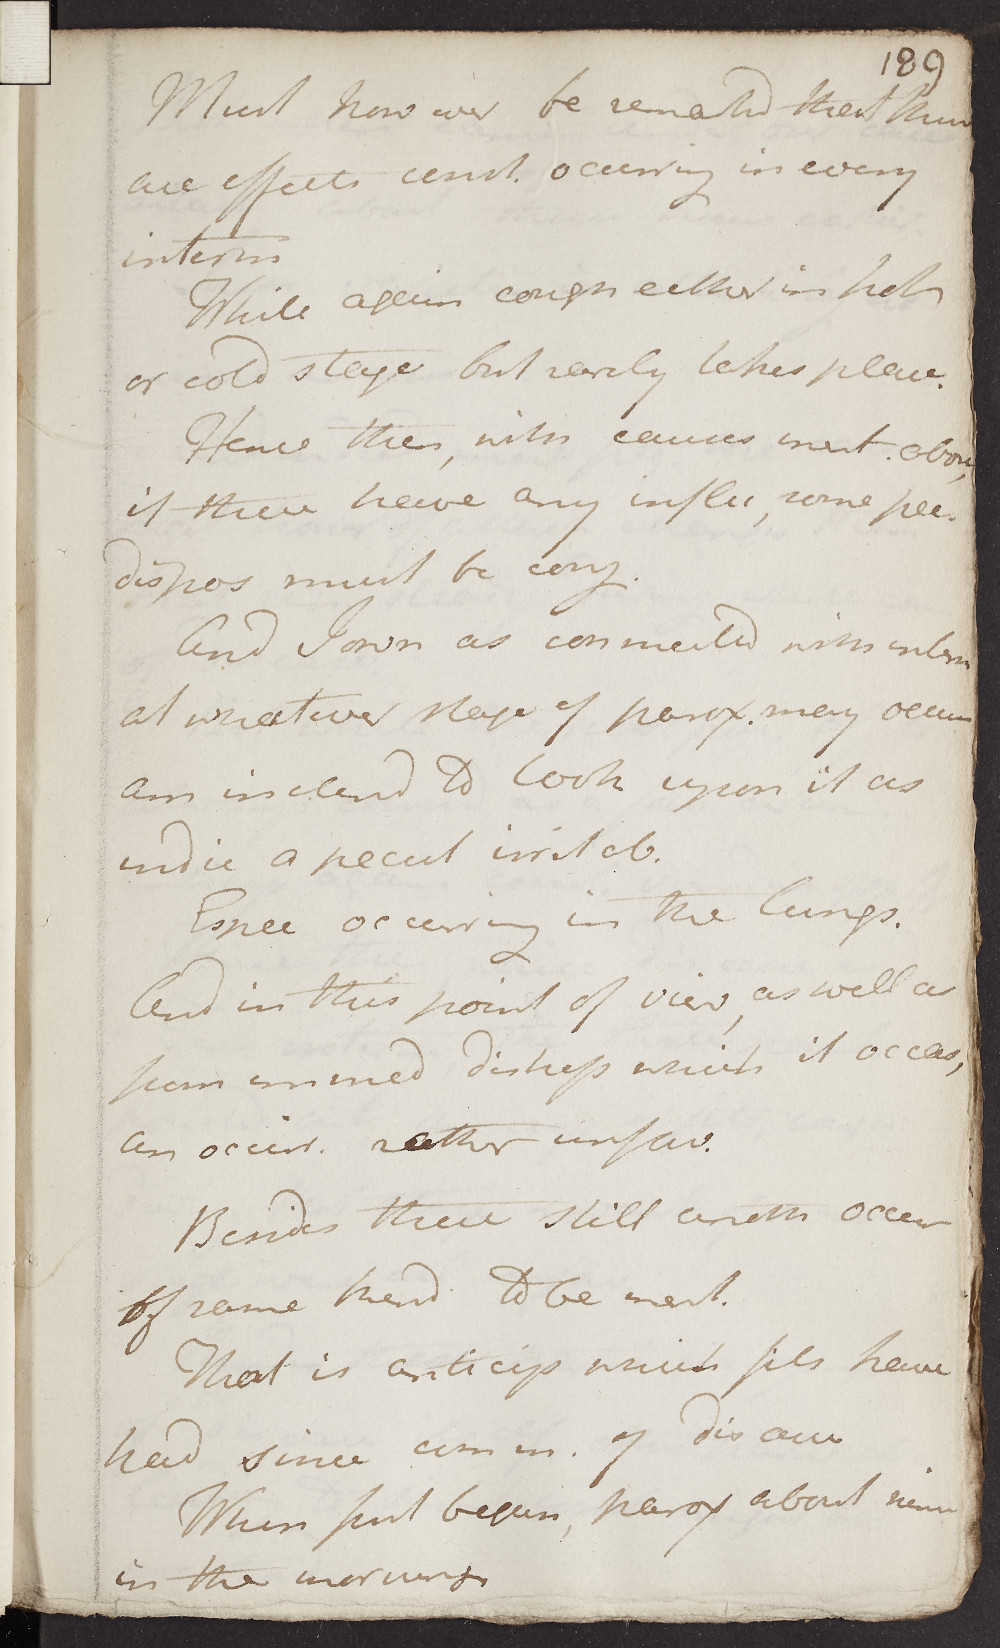 189
Must how ever be remarkd that these
are effects const. occurring in every
interm
While again cough either in hot
or cold stage but rarely takes place.
Hence then, with causes ment. above,
if these have any influ, some pre-
dispos must be cong.
And I own as connected with interm
at whatever stage of parox. may occur
am inclend to look upon it as
indic a pecul irritab.
Espec occurring in the lungs.
And in this point of view, as well as
from immed distress which it occas,
an occur. rather unfav.
Besides these still anoth occur
of same kend to be ment.
That is anticip which fits have
had since comm. of disease
When first began, parox about nine
in the morning